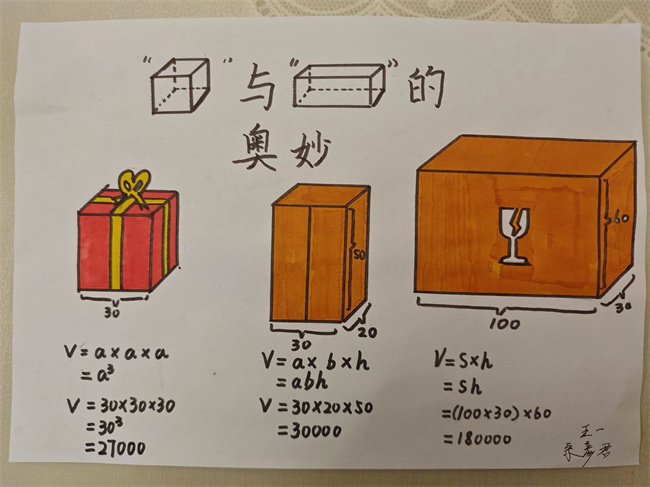 “ ”与“ ”的
奥妙
30
50
30
20
60
100
30
V=a×a×a
=a³
V=30×30×30
=30³
=27000
V=a×b×h
=abh
V=30×20×50
=30000
V=S×h
=Sh
=(100×30)×60
=180000
王一